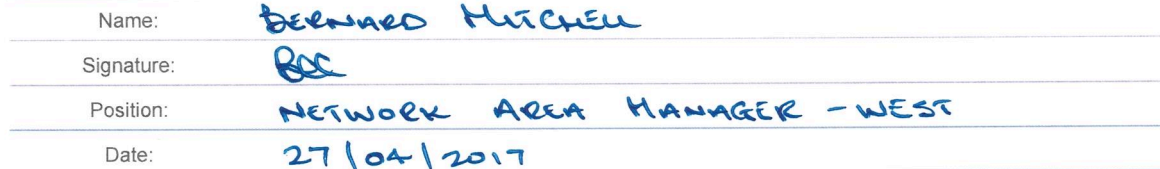 Name: BERNARD MITCHELL
Signature:
Position: NETWORK AREA MANAGER - WEST
Date: 27/04/2017